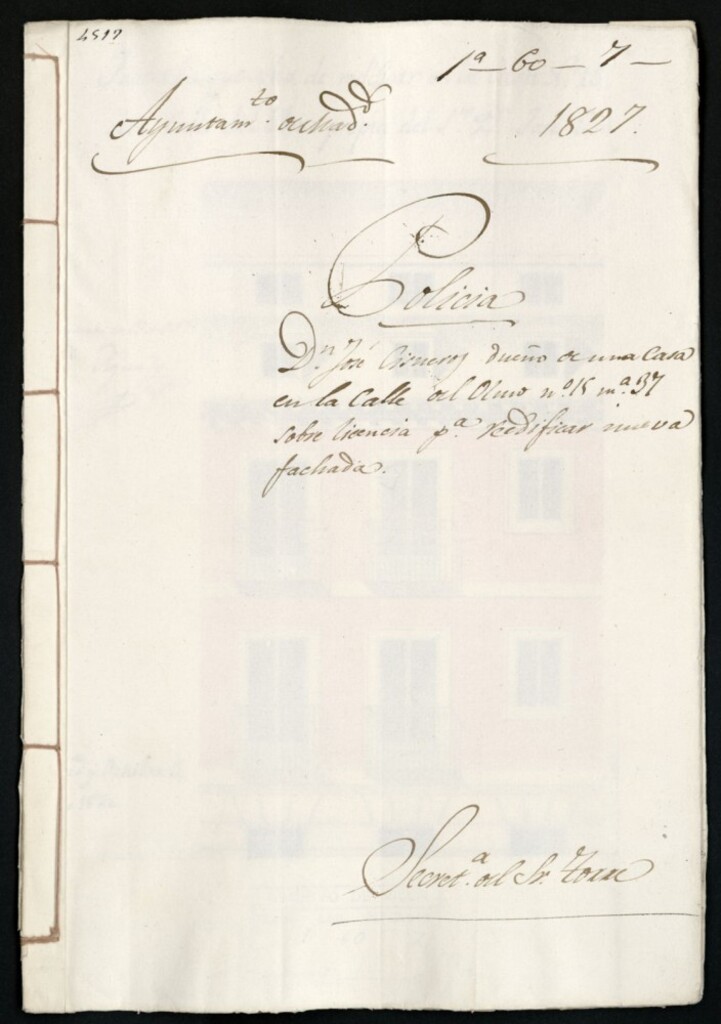 1ª - 60 - 7 -
Ayuntam.to de Mad.d
1827.
Policia
D.n José Cisneros dueño de una Casa
en la Calle del Olmo n.º 15 m.ª 37
sobre licencia p.ª reedificar nueva
fachada.
Secret.ª del Sr. Torre